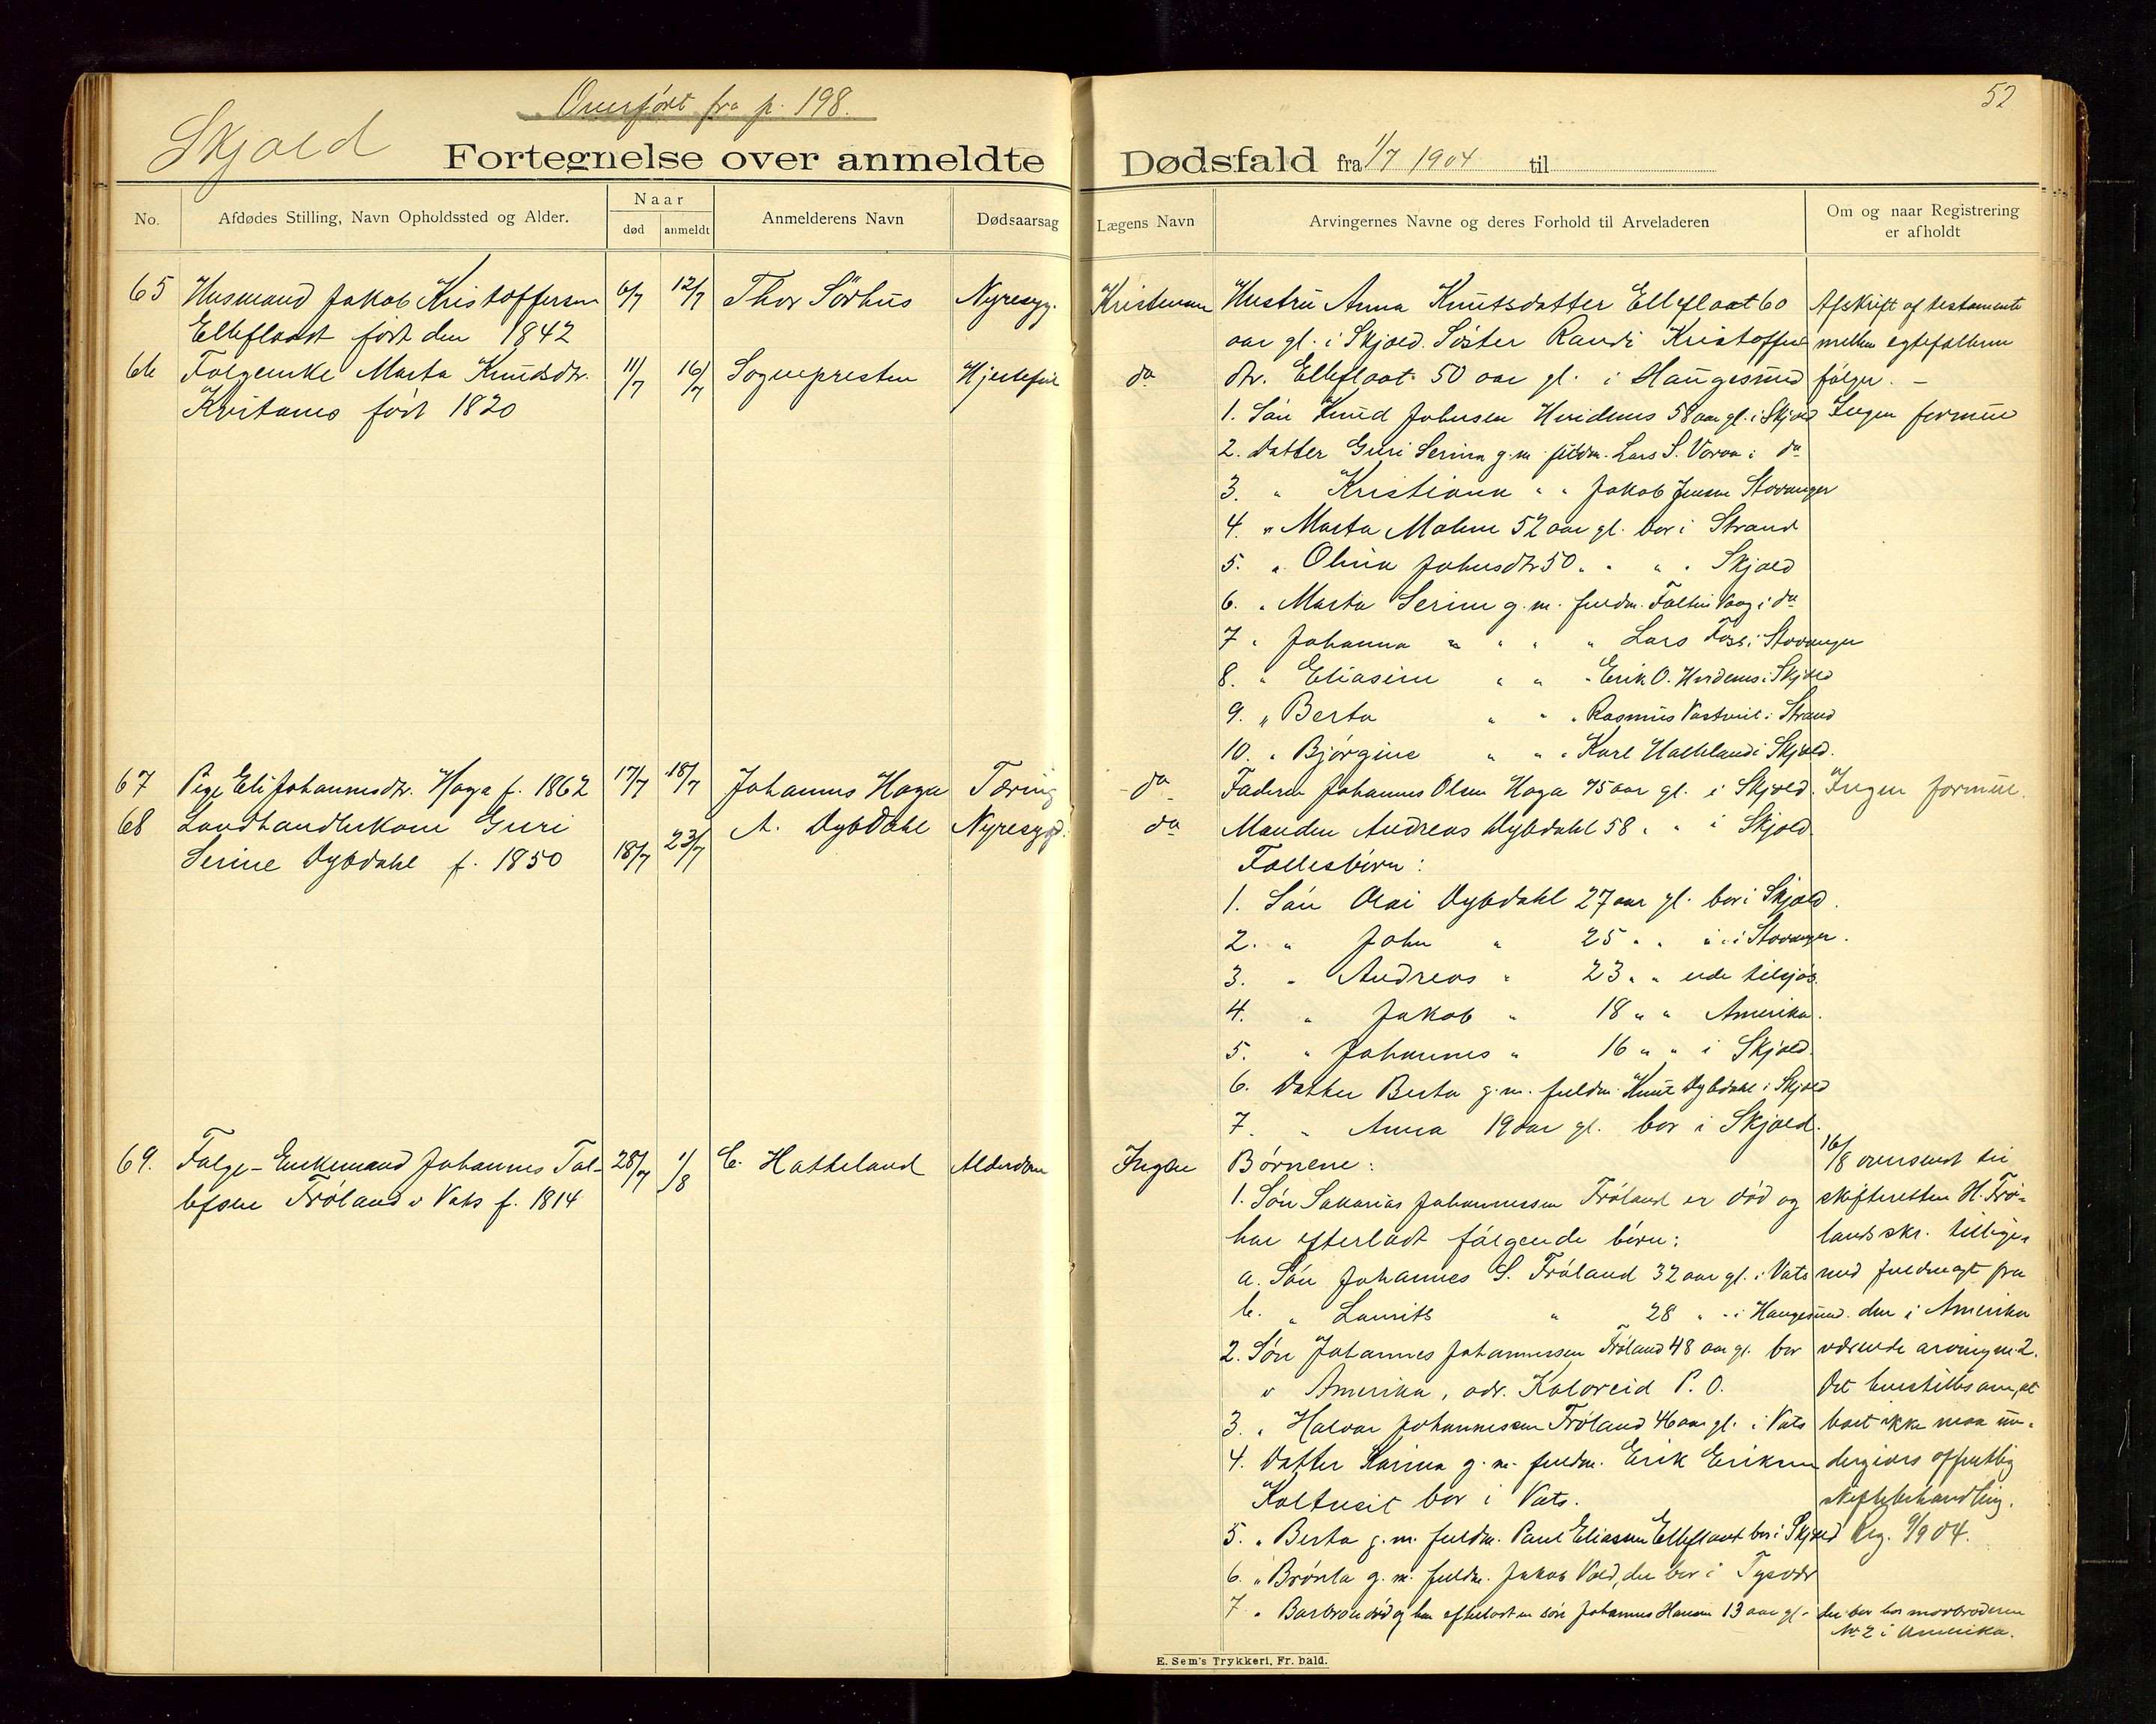 Overført fra p. 198.
52
Skjold
Fortegnelse over anmeldte Dødsfald fra 1/7 1904 til
No.
Afdødes Stilling, Navn Opholdssted og Alder.
Naar
død
anmeldt
Anmelderens Navn
Dødsaarsag
Lægens Navn
Arvingernes Navne og deres Forhold til Arveladeren
Om og naar Registrering
er afholdt
65 Husmand Jakob Kristoffersen 6/7 12/7 Thor Sörhus Nyresyg. Kristensen Hustru Anna Knutsdatter Elleflaat 60 Afskrift af testamente
Elleflaat født den 1842 aar gl. i Skjold. Søster Randi Kristoffers mellem egtefolkene
66 Folgeenke Marta Knudsdtr. 11/7 16/7 Sognepresten Hjertefeil do dtr. Elleflaat 50 aar gl. i Haugesund følger. –
født 1820 1. Søn Knud Johnsen 58 aar gl. i Skjold Ingen formue
2. Datter Guri Serina g. m. fuldm. Lars S. i do
3. " Kristiana " " Jakob Jensen Stavanger
4. " Marta Malene 52 aar gl. bor i Strand
5. " Olina Johnsdtr 50 " " " " Skjold
6. " Marta Serine g. m. fuldm. i do
7 " Johanna " " " " Lars Foss i Stavanger
8. " Eliasine " " " Erik O. i Skjold
9. " Berta " " " Rasmus i Strand
10. " Bjørgine " " " Karl i Skjold.
67 Pige Eli Johannesdtr. Haga f. 1862 17/7 18/7 Johannes Haga Tæring do Faderen Johannes Olsen Haga 75 aar gl. i Skjold. Ingen formue.
68 Landhandlerkone Guri 18/7 23/7 A. Dybdahl Nyresygd. do Manden Andreas Dybdahl 58 " " i Skjold
Serine Dybdahl f. 1850 Fællesbørn:
1. Søn Dybdahl 27 aar gl. bor i Skjold.
2. " John " 25 " " " i Stavanger.
3. " Andreas " 23 " " ude tilsjøs.
4. " Jakob " 18 " " Amerika.
5. " Johannes " 16 " " i Skjold.
6. Datter Berta g. m. fuldm. Knut Dybdahl i Skjold
7. " Anna 19 aar gl. bor i Skjold.
69. Folge-Enkemand Johannes Tol- 28/7 1/8 C. Hatteland Alderdom Ingen Børnene: 16/8 oversendt til
lefsen Frøland i Vats f. 1814 1. Søn Sakarias Johannessen Frøland er død og skifteretten H. Frø-
har efterladt følgende børn: lands skr. tilligem
a. Søn Johannes S. Frøland 32 aar gl. i Vats med fuldmagt fra
b. " Laurits " 28 " " i Haugesund. den i Amerika
2. Søn Johannes Johannessen Frøland 48 aar gl. bor værende arving no 2.
i Amerika, adr. P. O. Det henstilles om, at
3. " Halvor Johannessen Frøland 46 aar gl. i Vats boet ikke maa un-
4. Datter Karina g. m. fuldm. Erik Eriksen dergives offentlig
bor i Vats. skiftebehandling.
5. " Berta g. m. fuldm. Paul Eliassen Elleflaat bor i Skjold Reg. 9/9 04.
6. " g. m. fuldm. Jakob Vold, der bor i Tysvær
7 " død og har efterladt en søn Johannes Hansen 13 aar gl. der bor hos morbroderen
No 2 i Amerika.
E. Sem's Trykkeri, Fr. hald.